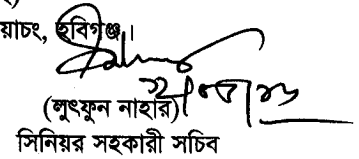 য়াচং, হবিগঞ্জ।
(লুৎফুন নাহার)
সিনিয়র সহকারী সচিব